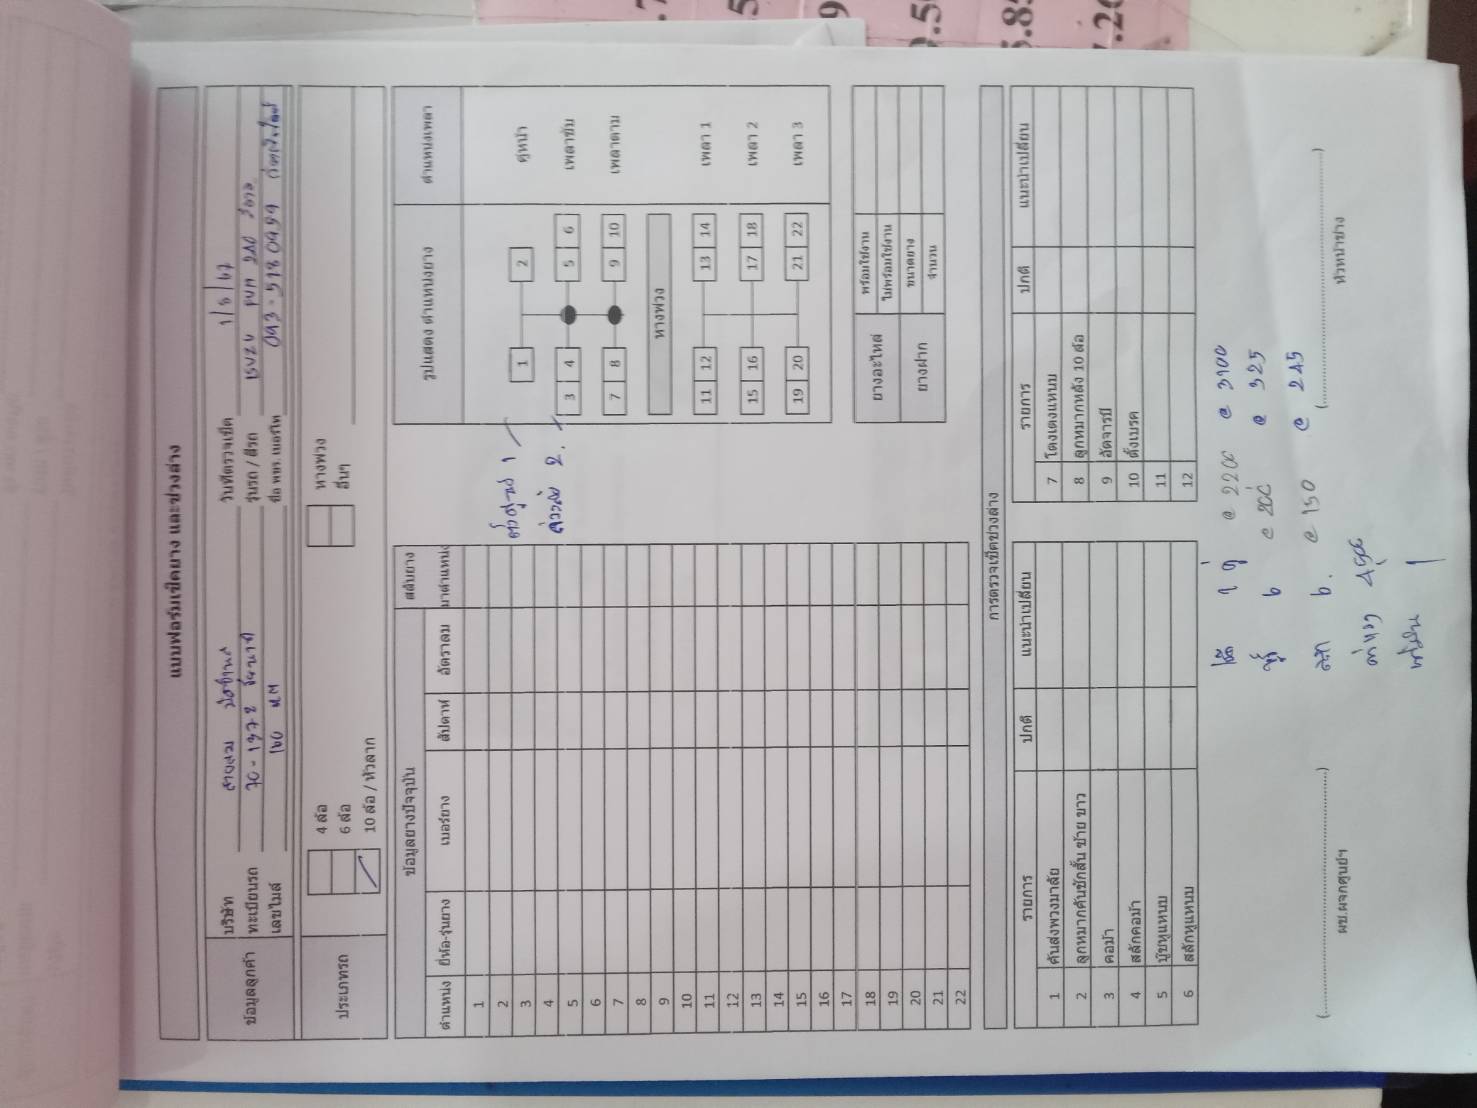 แบบฟอร์มเช็คยาง และช่วงล่าง
ข้อมูลลูกค้า
บริษัท
วันที่ตรวจเช็ค 1/8/67
ทะเบียนรถ 70-1372 ชัยนาท
รุ่นรถ / สีรถ ISUZU FVM 240 สีขาว
เลขไมล์ 160
ชื่อ พขร. เบอร์โทร 093-5180959
ประเภทรถ
4 ล้อ
6 ล้อ
10 ล้อ / หัวลาก
หางพ่วง
อื่นๆ
ข้อมูลยางปัจจุบัน สลับยาง
ตำแหน่ง ยี่ห้อ-รุ่นยาง เบอร์ยาง สัปดาห์ อัตราลม มาตำแหน่ง
1
2
3
4
5
6
7
8
9
10
11
12
13
14
15
16
17
18
19
20
21
22
1
2.
รูปแสดง ตำแหน่งยาง ตำแหน่งเพลา
1 2 คู่หน้า
3 4 5 6 เพลาขับ
7 8 9 10 เพลาตาม
หางพ่วง
11 12 13 14 เพลา 1
15 16 17 18 เพลา 2
19 20 21 22 เพลา 3
ยางอะไหล่ พร้อมใช้งาน
ไม่พร้อมใช้งาน
ยางฝาก ขนาดยาง
จำนวน
การตรวจเช็คช่วงล่าง
รายการ ปกติ แนะนำเปลี่ยน
1 คันส่งพวงมาลัย
2 ลูกหมากคันชักสั้น ซ้าย ขาว
3 คอม้า
4 สลักคอม้า
5 บู๊ชหูแหนบ
6 สลักหูแหนบ
รายการ ปกติ แนะนำเปลี่ยน
7 โตงเตงแหนบ
8 ลูกหมากหลัง 10 ล้อ
9 อัดจารบี
10 ตั้งเบรค
11
12
1 คู่ @ 2200 @ 3100
6 @ 200 @ 325
6. @ 150 @ 245
ค่าแรง 4500
1
(........................................)
ผช.ผจกศูนย์ฯ
(........................................)
หัวหน้าช่าง